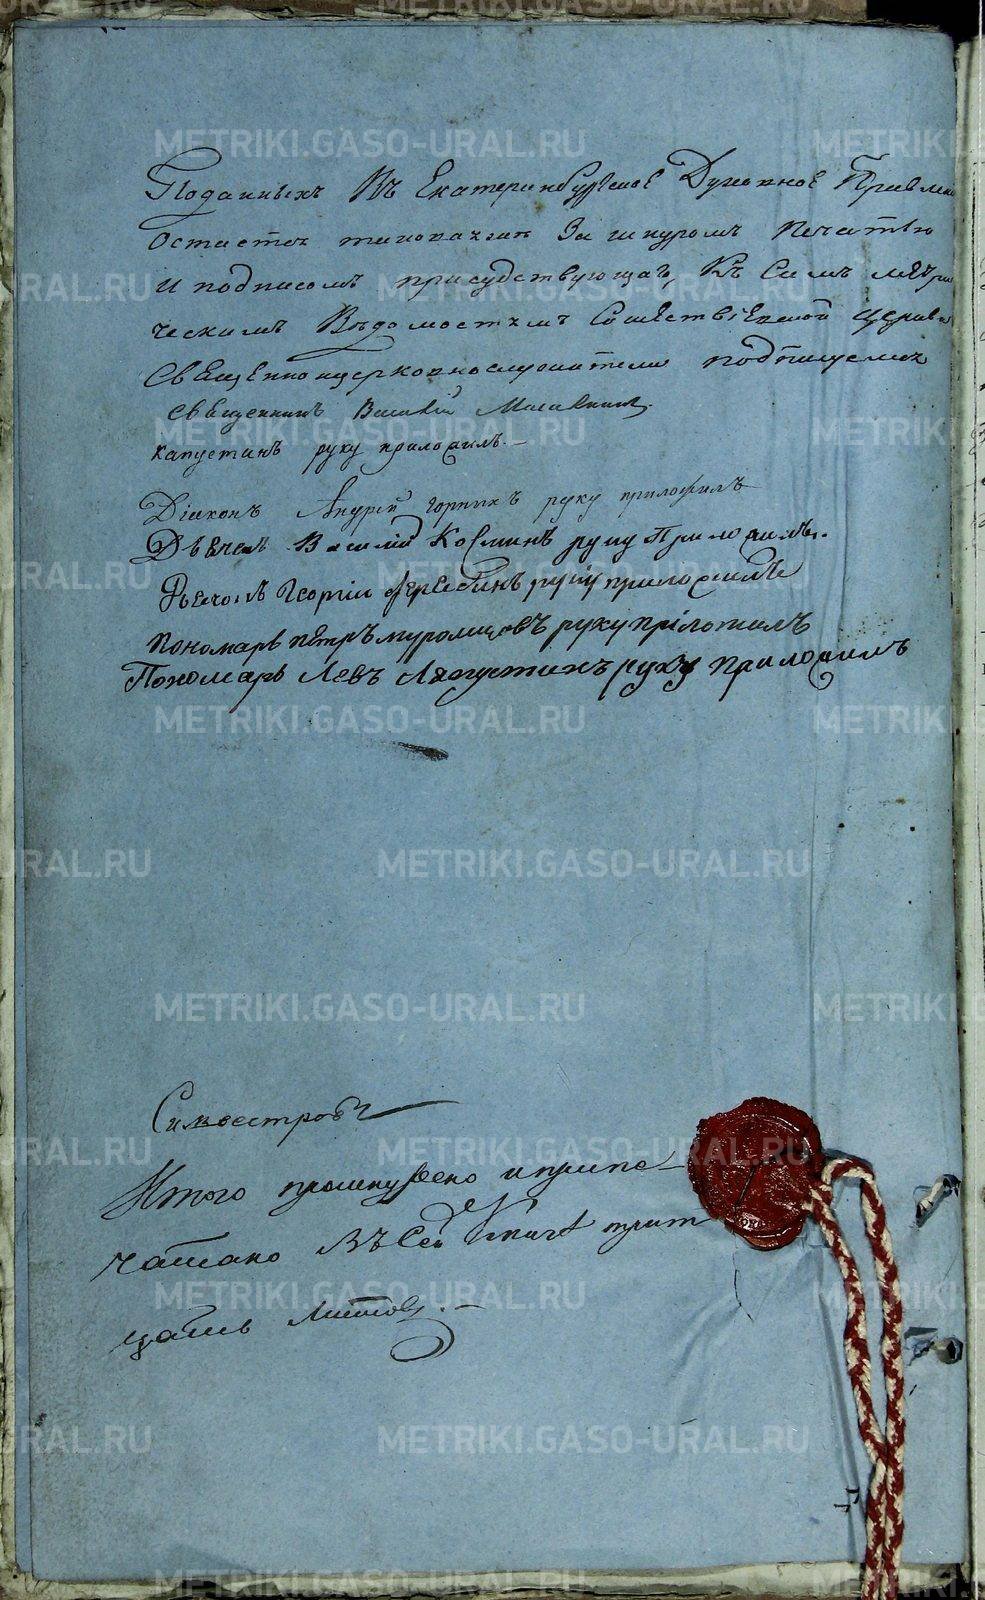 Поданныхъ Въ Екатеринбургское Духовное Правлен
остается таковаяжъ За шнуромъ печатью
и подписомъ присудствующаго, Къ Симъ метри
ческимъ Вѣдомостямъ Сошествіевской церкви
Священноицерковнослужители подпишемся
священникъ Василій
Капустинъ руку приложилъ.
Діаконъ Андрей руку приложилъ
Дьячекъ Василій Косминъ руку Приложилъ.
Дьячокъ Георгіи руку приложилъ
Пономарь петръ муромцовъ руку пріложилъ
Пономарь Левъ руку приложилъ
Итого прошнуровано иприпе-
чатано Въ Сей Книгѣ трит
цать Листовъ.
METRIKI.GASO-URAL.RU